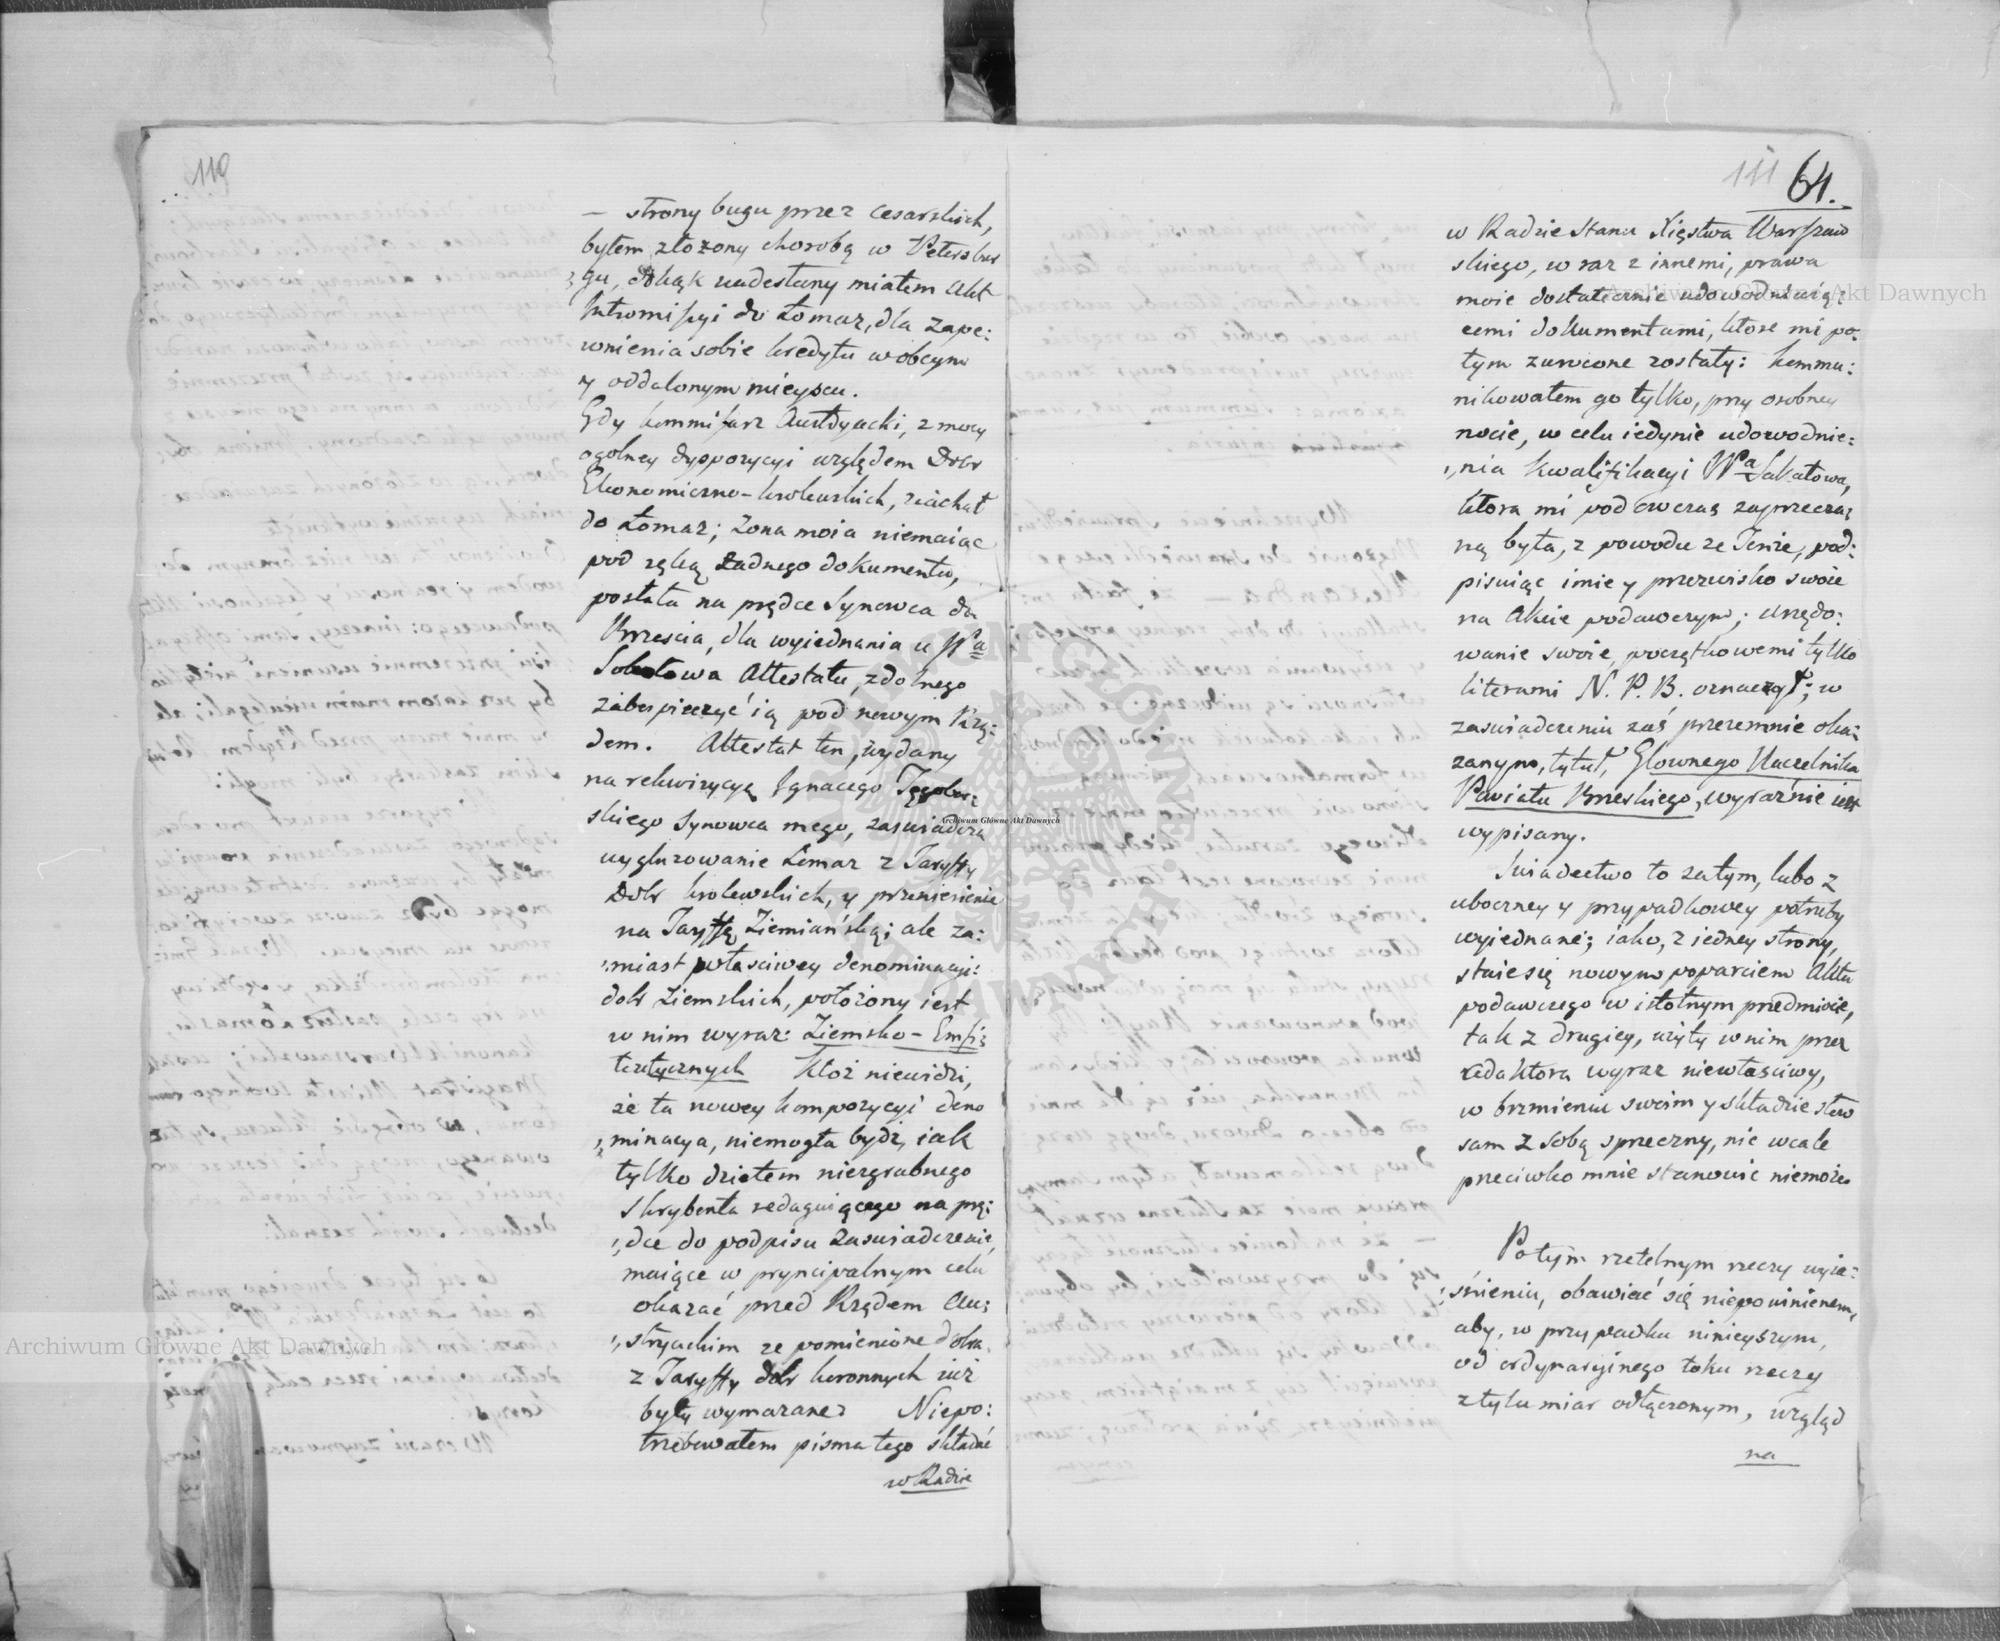 110
— strony bugu przez Cesarskich,
byłem złożony chorobą w Petersbur
gu, dokąk nadesłany miałem Akt
Intromissyi do Łomaz, dla zape:
wnienia sobie kredytu w obcym
y oddalonym mieyscu.
Gdy kommissarz Austryacki, z mocy
ogolney dyspozycyi względem Dobr
Ekonomiczno-krolewskich, ziachał
do Łomaz; żona moia niemaiąc
pod ręką żadnego dokumentu,
posłała na prędce Synowca do
Brześcia, dla wyiednania u Wa
Sobotowa Attestatu, zdolnego
zabespieczyć ią pod nowym Rzą:
dem. Attestat ten, wydany
na rekwizycyą Ignacego Tęgobor:
skiego Synowca mego, zaświadcza
wygluzowanie Łomaz z Taryffy
Dobr krolewskich, y przeniesienie
na Taryffę Ziemiańską; ale za:
miast właściwey denominacyi:
dobr Ziemskich, położony iest
w nim wyraz: Ziemsko-Emfi:
teutycznych Ktoż niewidzi,
że ta nowey kompozycyi deno
minacya, niemogła bydź, iak
tylko dziełem niezgrabnego
Skrybenta redaguiącego na prę:
dce do podpisu Zaświadczenie,
maiące w pryncypalnym celu
okazać przed Rządem Au:
stryackim ze pomienione dobra
z Taryffy dobr koronnych iuż
były wymazane. Niepo:
trzebowałem pisma tego składać
w Radzie
111 64.
w Radzie Stanu Xięstwa Warszaw
skiego, w raz z innemi, prawa
moie dostatecznie udowodniaią:
cemi dokumentami, ktore mi po:
tym zwrocone zostały: kommu:
nikowałem go tylko, przy osobney
nocie, w celu iedynie udowodnie:
nia kwalifikacyi Wa Sabatowa,
ktora mi pod owczas zaprzecza:
ną była, z powodu ze Tenże, pod:
pisuiąc imie y przezwisko swoie
na Akcie podawczym; urzędo:
wanie swoie, początkowemi tylko
literami N. P. B. oznaczył; w
zaświadczeniu zaś przezemnie oka:
zanym, tytuł, Głownego Naczelnika
Powiatu Brzeskiego, wyraźnie iest
wypisany.
Swiadectwo to zatym, lubo z
uboczney y przypadkowey potrzeby
wyiednane; iako, z iedney strony,
staie się nowym poparciem Aktu
podawczego w istotnym przedmiocie,
tak z drugiey, użyty w nim przez
redaktora wyraz niewłaściwy,
w brzmieniu swoim y składzie słow
sam z sobą sprzeczny, nic wcale
przeciwko mnie stanowić niemoże
Po tym rzetelnym rzeczy wyia:
śnieniu, obawiać się niepowinienem,
aby, w przypadku ninieyszym,
od ordynaryinego toku rzeczy
z tylu miar odłączonym, wzgląd
na
Archiwum Główne Akt Dawnych
Archiwum Główne Akt Dawnych
Archiwum Główne Akt Dawnych